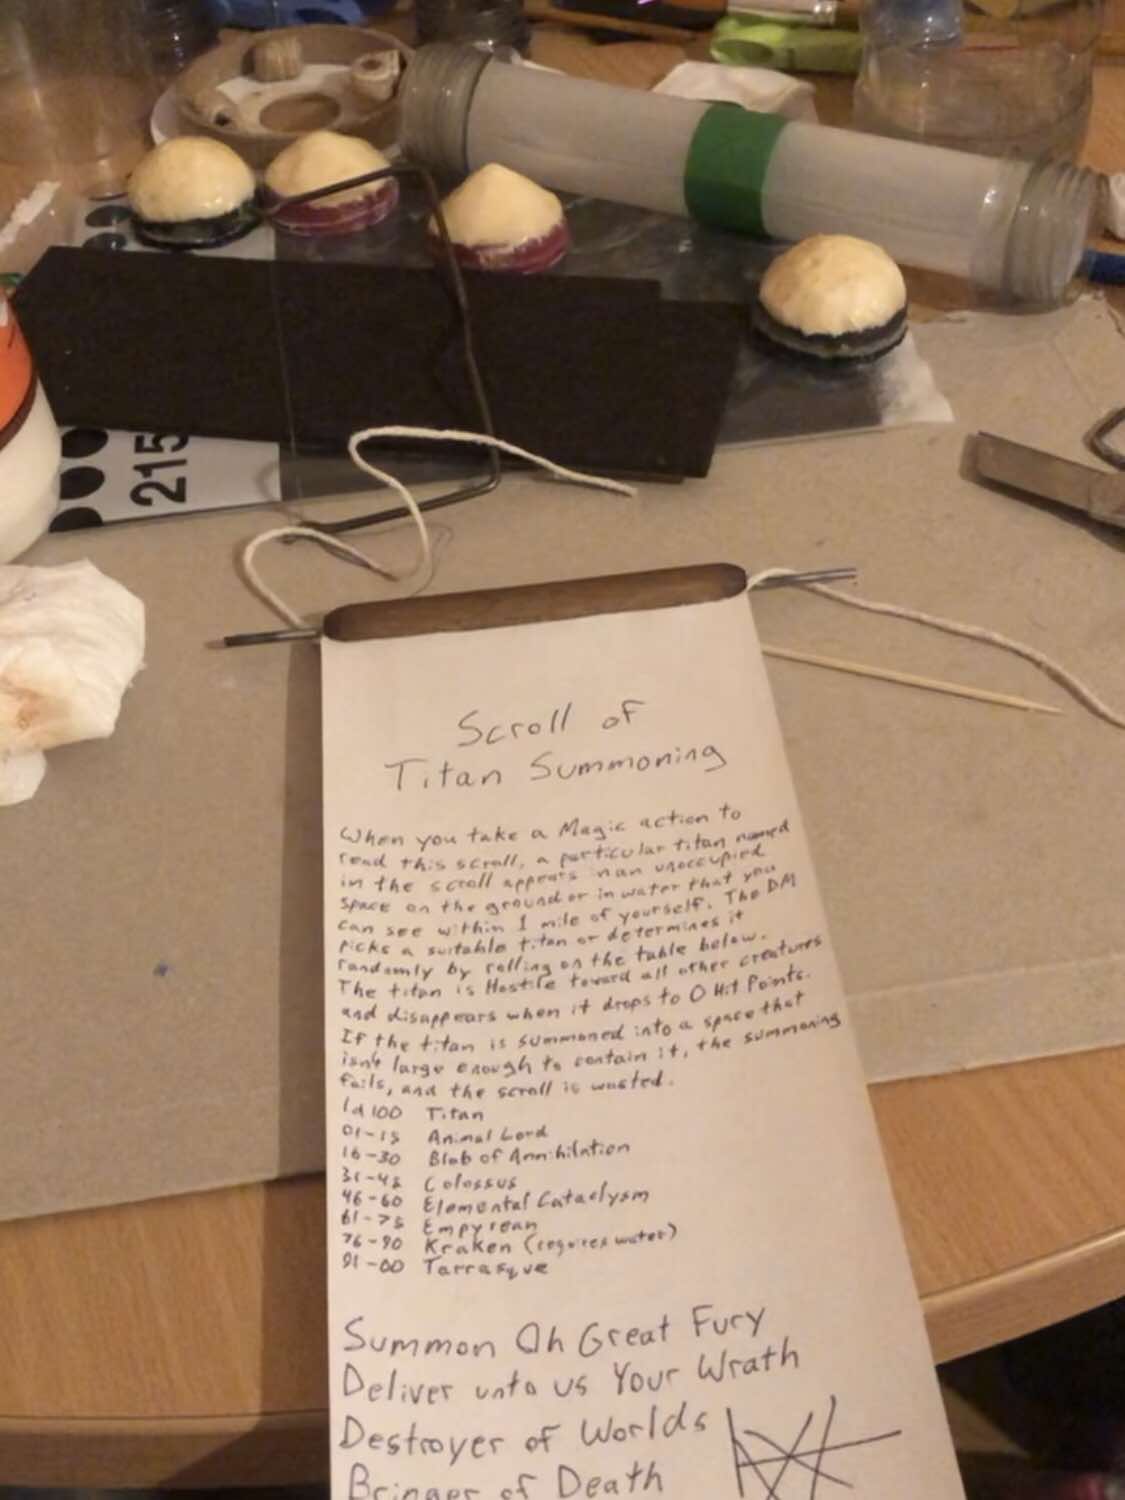 215
Scroll of
Titan Summoning
When you take a Magic action to
read this scroll, a particular titan named
in the scroll appears in an unoccupied
space on the ground or in water that you
can see within 1 mile of yourself. The DM
picks a suitable titan or determines it
randomly by rolling on the table below.
The titan is Hostile toward all other creatures
and disappears when it drops to 0 Hit Points.
If the titan is summoned into a space that
isn't large enough to contain it, the summoning
fails, and the scroll is wasted.
1d100 Titan
01-15 Animal Lord
16-30 Blob of Annihilation
31-45 Colossus
46-60 Elemental Cataclysm
61-75 Empyrean
76-90 Kraken (requires water)
91-00 Tarrasque
Summon Oh Great Fury
Deliver unto us Your Wrath
Destroyer of Worlds
Bringer of Death